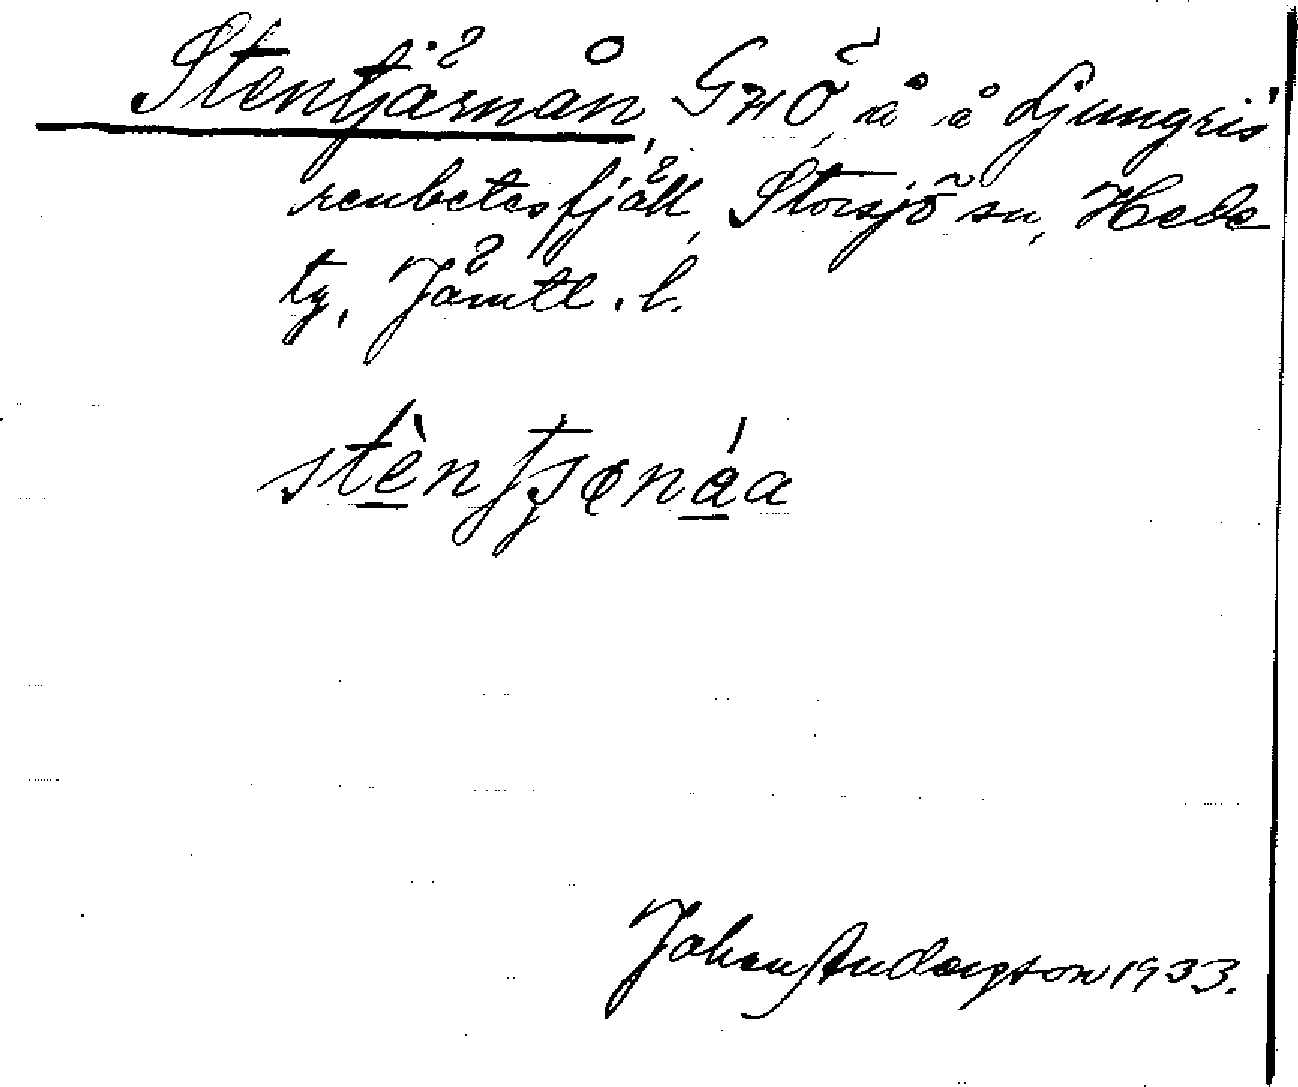 Stentjärnån, G7Ö, å å Ljungris
renbetesfjäll, Storsjö sn, Hede
tg, Jämtl. l.
Johan Anderson 1933.